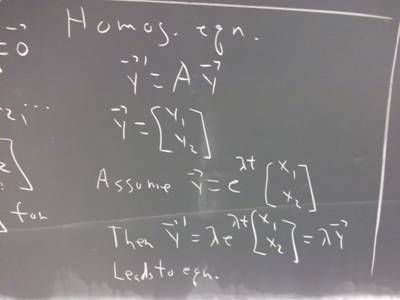 Homog. eqn.
= 0⃗
Y⃗' = A Y⃗
2, ...
Y⃗ = [Y₁ Y₂]
Assume Y⃗ = e^λt [x₁ x₂]
for
Then Y⃗' = λe^λt [x₁ x₂] = λY⃗
Leads to eqn.